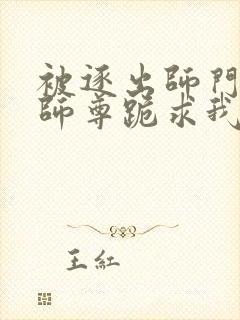 被逐出師門
師尊跪求我
王紅